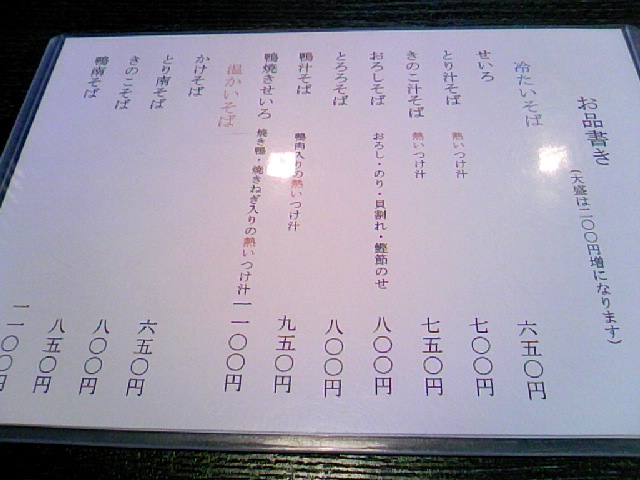 お品書き
(大盛は二〇〇円増になります)
冷たいそば
せいろ 六五〇円
とり汁そば 熱いつけ汁 七〇〇円
きのこ汁そば 熱いつけ汁 七五〇円
おろしそば おろし・のり・貝割れ・鰹節のせ 八〇〇円
とろろそば 八〇〇円
鴨汁そば 鴨肉入りの熱いつけ汁 九五〇円
鴨焼きせいろ 焼き鴨・焼きねぎ入りの熱いつけ汁 一一〇〇円
温かいそば
かけそば 六五〇円
とり南そば 八〇〇円
きのこそば 八五〇円
鴨南そば 一一〇〇円